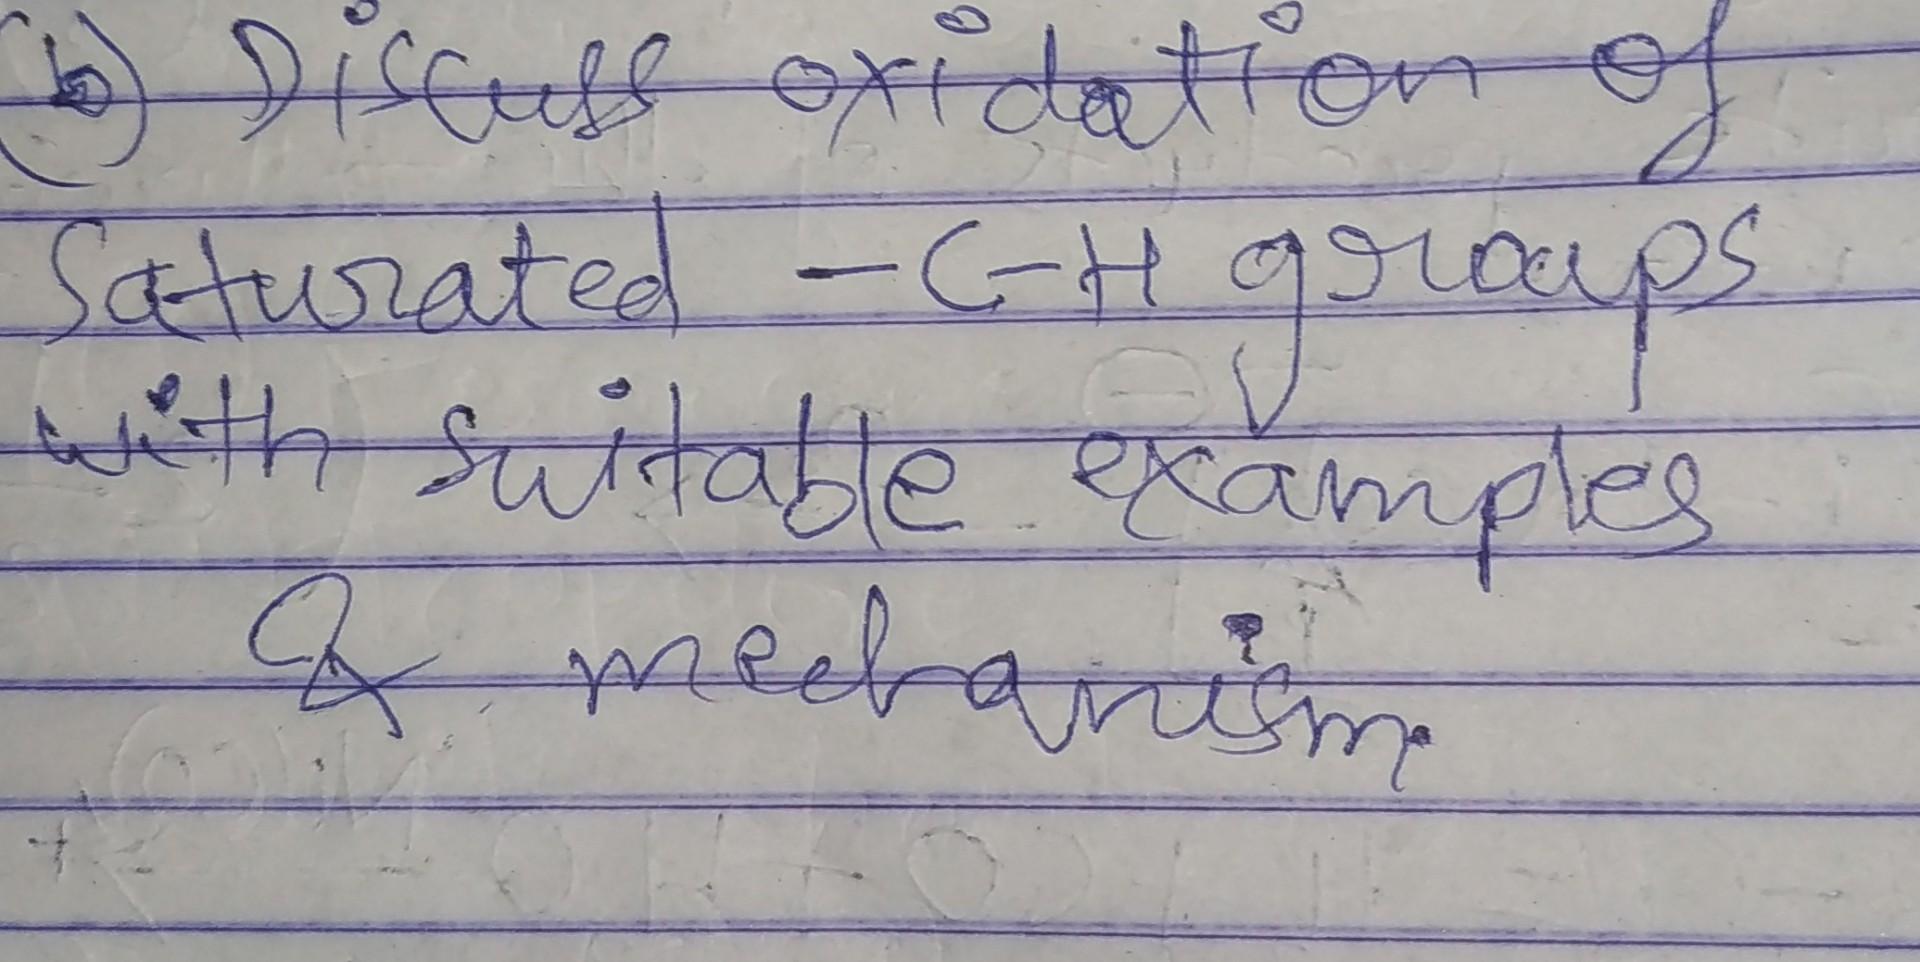 (b) Discuss oxidation of
Saturated -C-H groups
with suitable examples
& mechanism.